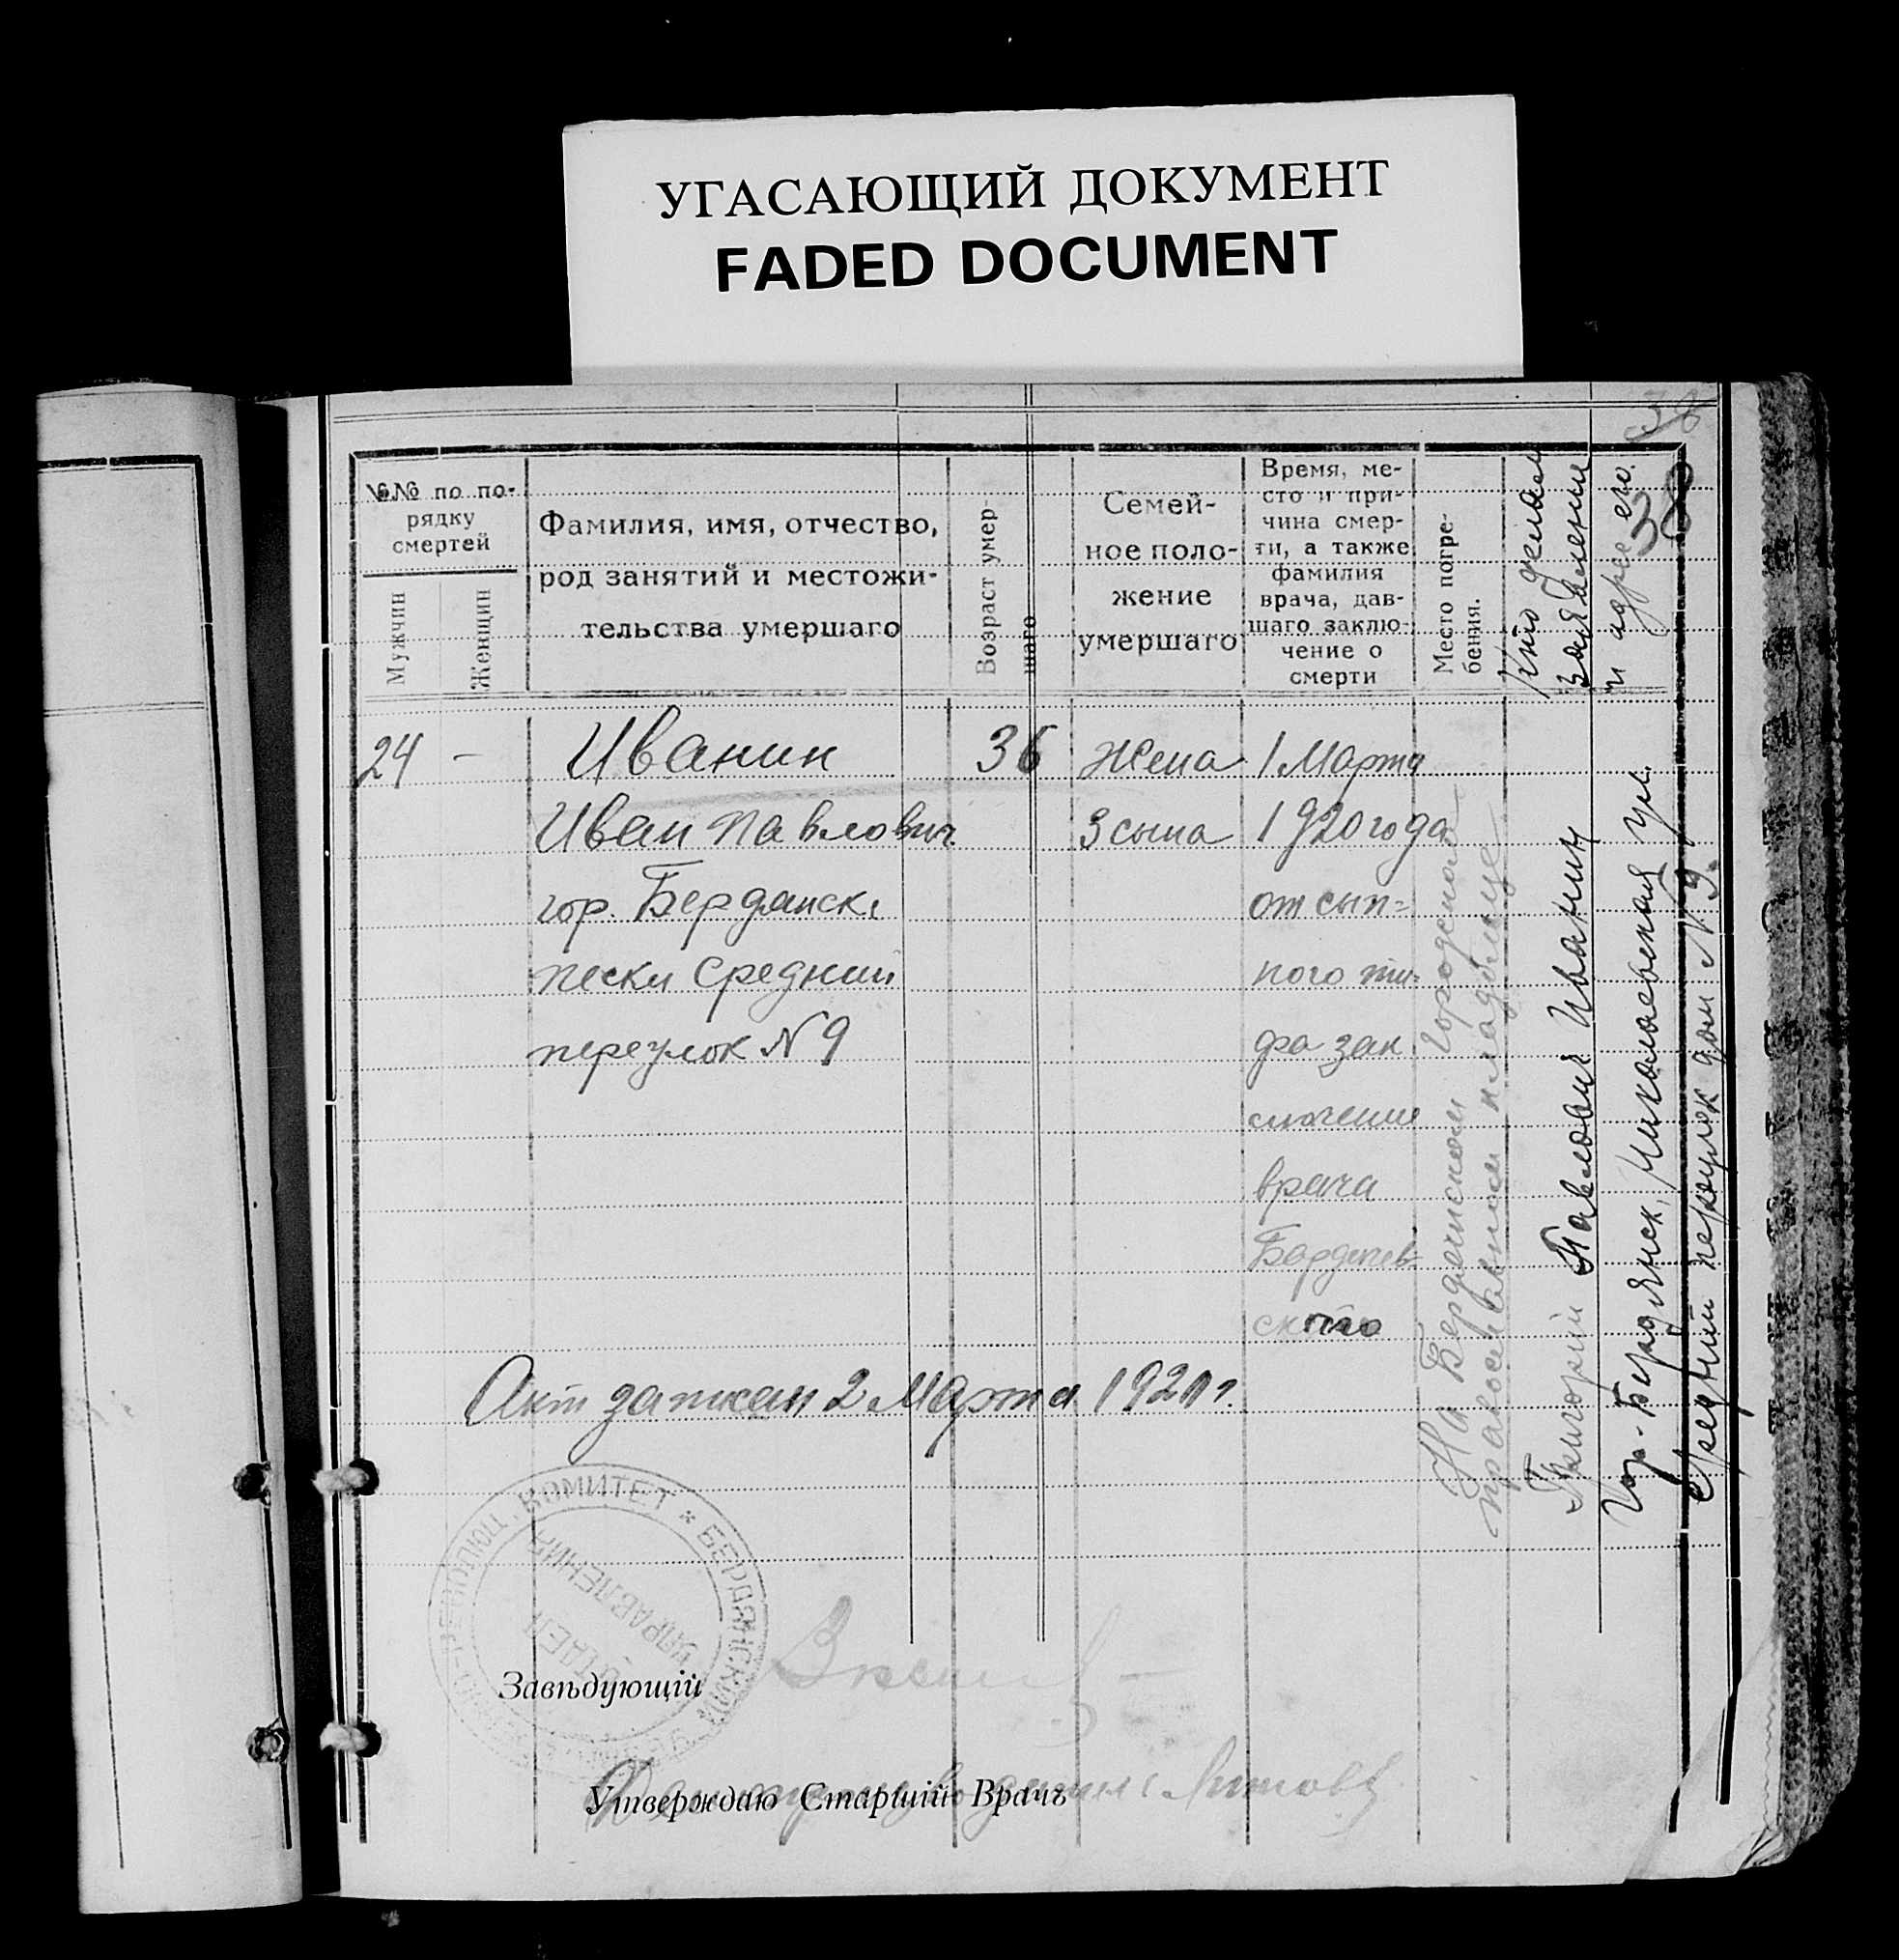 УГАСАЮЩИЙ ДОКУМЕНТ
FADED DOCUMENT
38
38
№№ по по-
рядку
смертей
Мужчин
Женщин
Фамилия, имя, отчество,
род занятий и местожи-
тельства умершаго
Возраст умер-
шаго
Семей-
ное поло-
жение
умершаго
Время, ме-
сто и при-
чина смер-
ти, а также
фамилия
врача, дав-
шаго заклю-
чение о
смерти
Место погре-
бения.
Кто делал
заявлении
и адрес его.
24 -
Иванин
Иван Павлович
гор. Бердянск,
пески Средний
переулок N 9
36
Жена
3 сына
1 Марта
1920 года
от сып=
ного ти-
фа зак
лючение
врача
Бардичев=
ского
На Бердянском городском
православном кладбище
Григорий Павлович Иванин
Гор. Бердянск, Николаевская ул.
Средний переулок дом N 9.
Акт записан 2 Марта 1920 г.
КОМИТЕТ * БЕРДЯНСКИЙ
ОТДЕЛ
УПРАВЛЕНИЯ
Завѣдующій
Утверждаю Старшій Врачъ